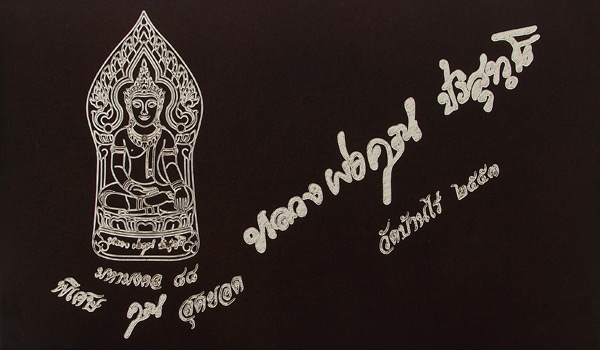 หลวง พ่อคูณ ปริสุทฺโธ
วัดบ้านไร่ ๒๕๕๓
หลวง พ่อคูณ ปริสุทฺโธ
มหามงคล ๘๘
พิเศษ คูณ สุดยอด